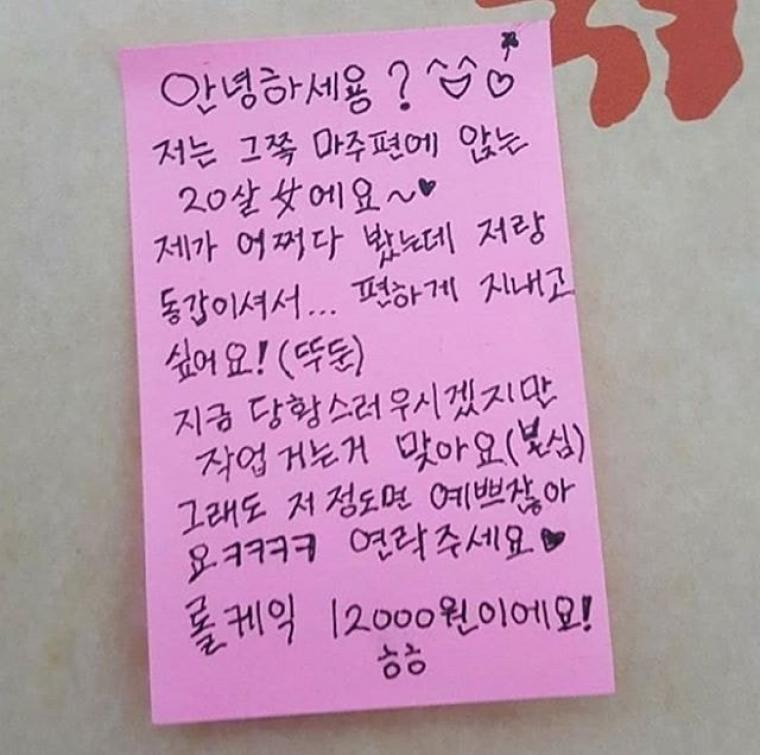 안녕하세용? ^^
저는 그쪽 마주편에 앉는
20살 女에요~♥
제가 어쩌다 봤는데 저랑
동갑이셔서... 편하게 지내고
싶어요! (뚜둔)
지금 당황스러우시겠지만
작업 거는거 맞아요(본심)
그래도 저 정도면 예쁘잖아
요ㅋㅋㅋㅋ 연락주세요♥
롤케익 12000원이에요!
ㅎㅎ